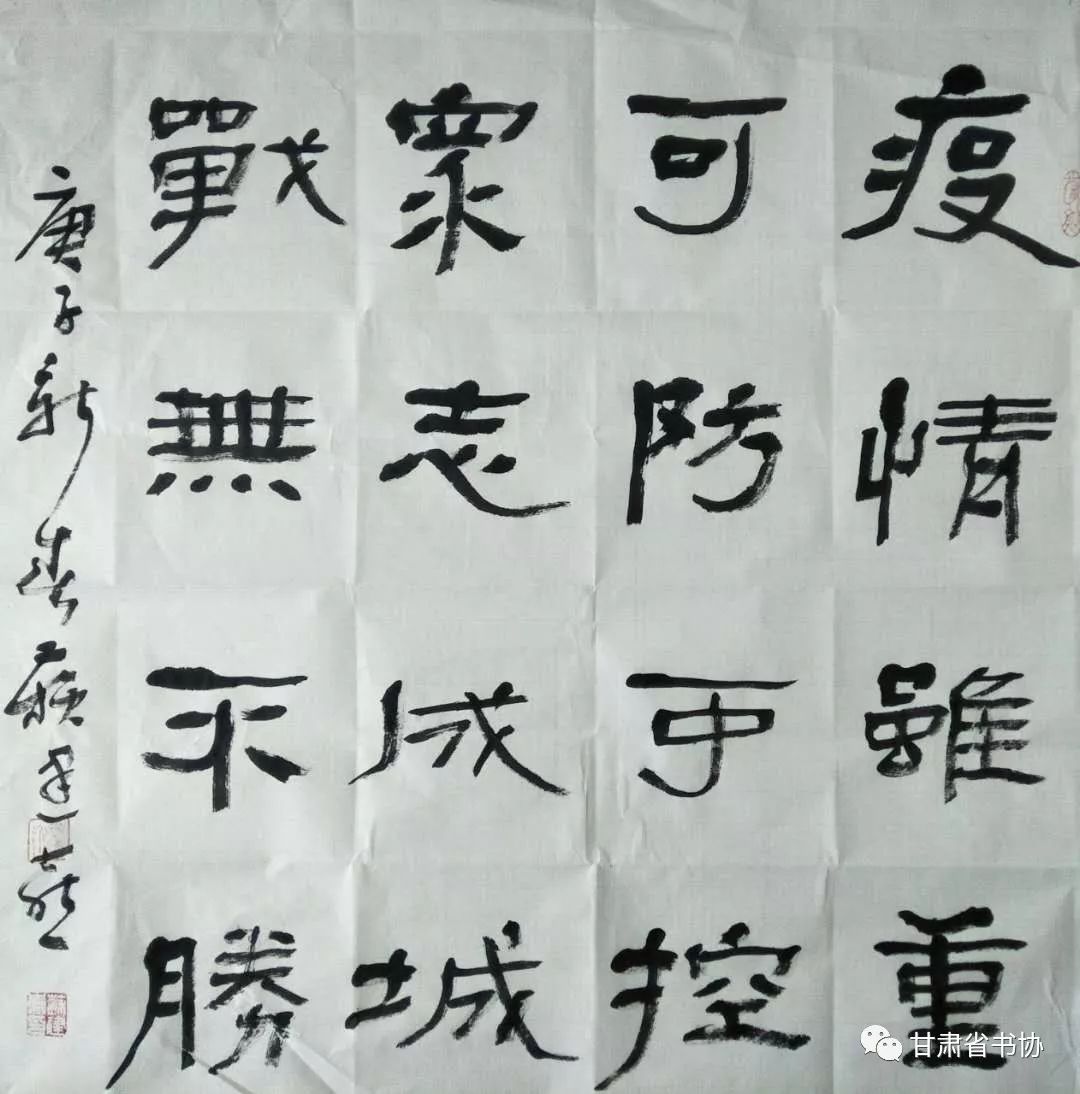 疫情雖重
可防可控
衆志成城
戰無不勝
庚子新春蘇建喜
甘肃省书协